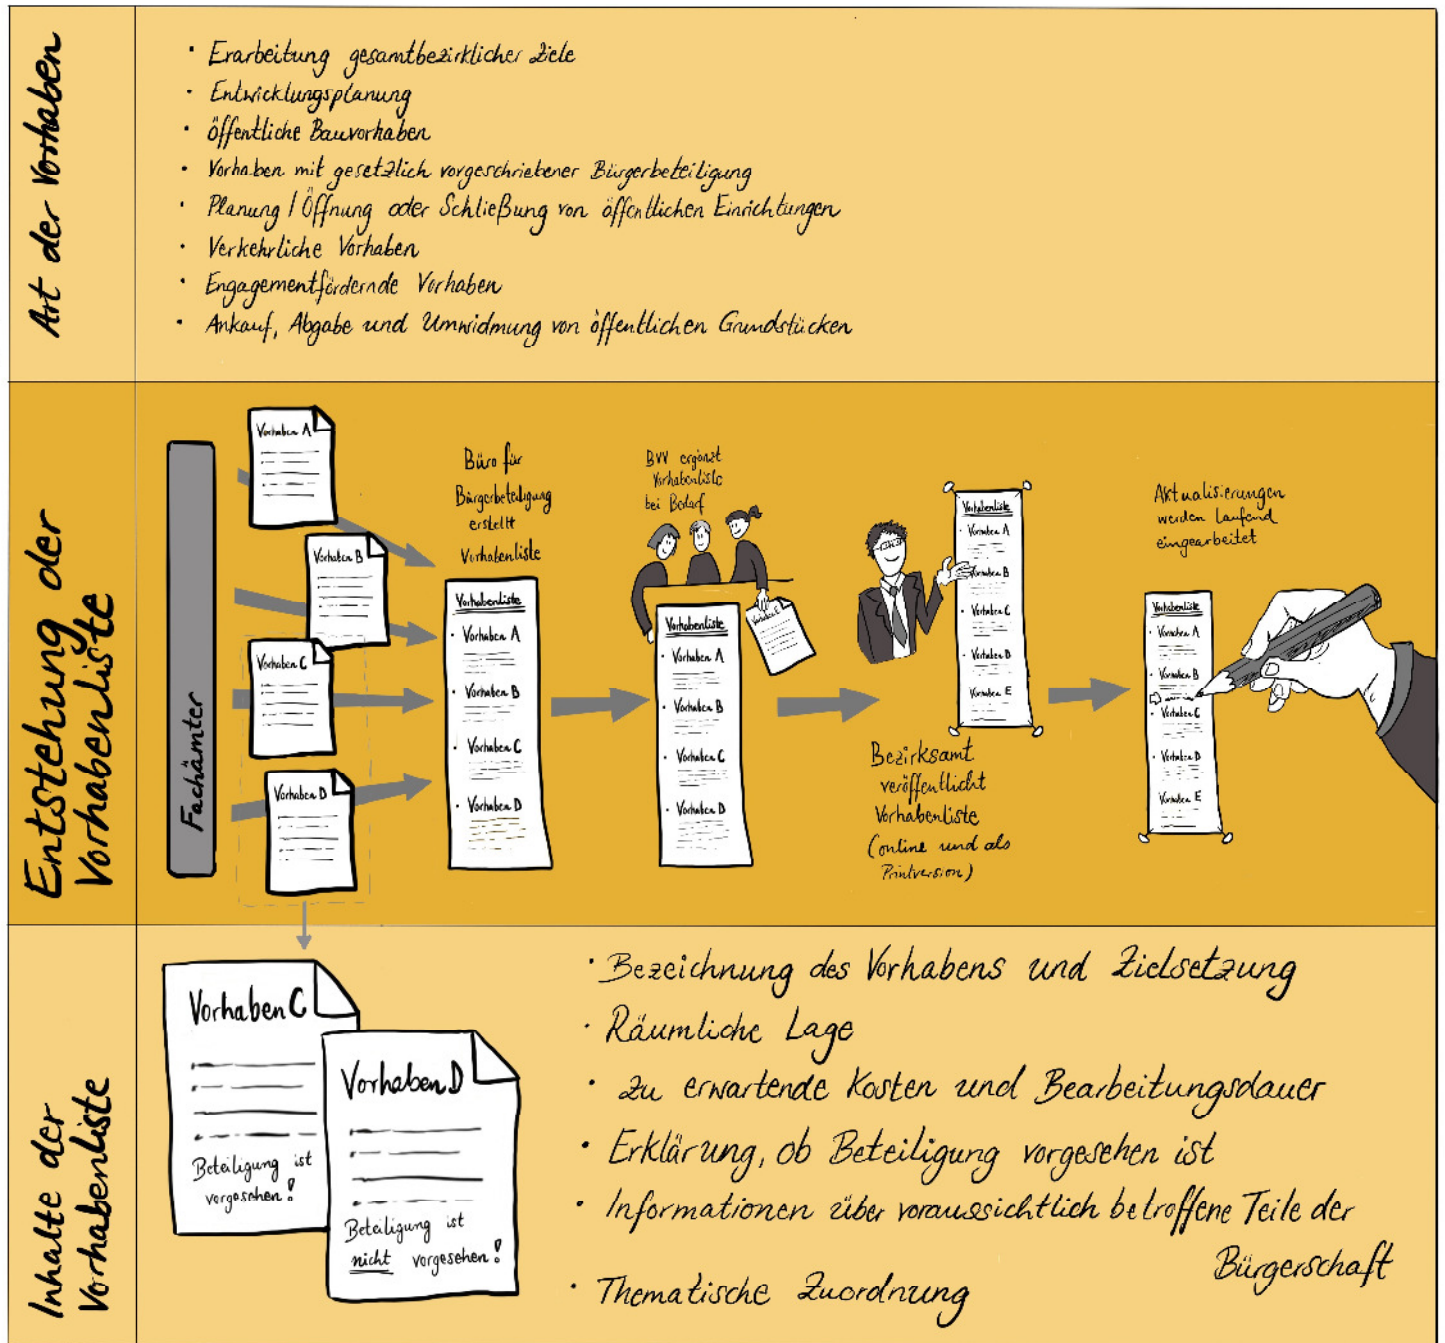 Art der Vorhaben
· Erarbeitung gesamtbezirklicher Ziele
· Entwicklungsplanung
· öffentliche Bauvorhaben
· Vorhaben mit gesetzlich vorgeschriebener Bürgerbeteiligung
· Planung / Öffnung oder Schließung von öffentlichen Einrichtungen
· Verkehrliche Vorhaben
· Engagementfördernde Vorhaben
· Ankauf, Abgabe und Umwidmung von öffentlichen Grundstücken
Entstehung der
Vorhabenliste
Fachämter
Vorhaben A
Vorhaben B
Vorhaben C
Vorhaben D
Büro für
Bürgerbeteiligung
erstellt
Vorhabenliste
Vorhabenliste
· Vorhaben A
· Vorhaben B
· Vorhaben C
· Vorhaben D
BVV ergänzt
Vorhabenliste
bei Bedarf
Vorhabenliste
· Vorhaben A
· Vorhaben B
· Vorhaben C
· Vorhaben D
Vorhaben E
Vorhabenliste
· Vorhaben A
· Vorhaben B
· Vorhaben C
· Vorhaben D
Vorhaben E
Bezirksamt
veröffentlicht
Vorhabenliste
(online und als
Printversion)
Aktualisierungen
werden laufend
eingearbeitet
Vorhabenliste
· Vorhaben A
· Vorhaben B
· Vorhaben C
· Vorhaben D
Vorhaben E
Inhalte der
Vorhabenliste
Vorhaben C
Beteiligung ist
vorgesehen!
Vorhaben D
Beteiligung ist
nicht vorgesehen!
· Bezeichnung des Vorhabens und Zielsetzung
· Räumliche Lage
· Zu erwartende Kosten und Bearbeitungsdauer
· Erklärung, ob Beteiligung vorgesehen ist
· Informationen über voraussichtlich betroffene Teile der
Bürgerschaft
· Thematische Zuordnung